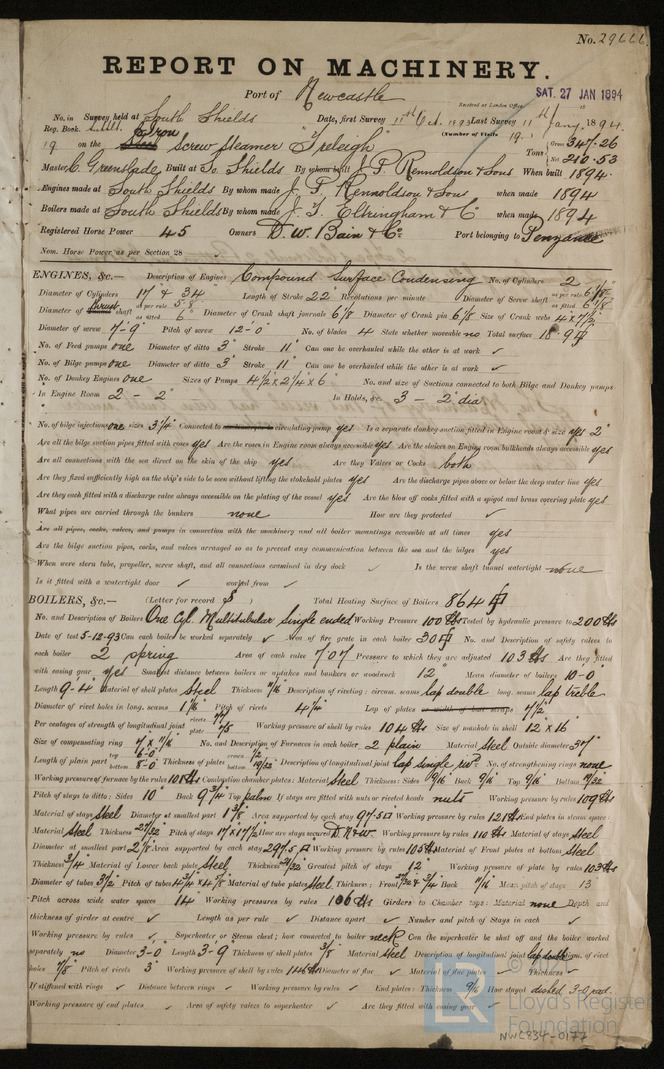 No. 29666.
REPORT ON MACHINERY.
Port of Newcastle
Received at London Office SAT. 27 JAN 1894
No. in Survey held at South Shields Date, first Survey 11th Oct. 1893 Last Survey 11th Jany. 1894.
Reg. Book. (Number of Visits 19)
19 on the Iron Screw Steamer "Treleigh" Tons Gross 347.26 Net 210.53
Master C. Greenslade Built at So. Shields By whom built J. P. Rennoldson & Sons When built 1894.
Engines made at South Shields By whom made J. P. Rennoldson & Sons when made 1894
Boilers made at South Shields By whom made J. T. Eltringham & Co when made 1894
Registered Horse Power 45 Owners D. W. Bain & Co. Port belonging to Penzance
Nom. Horse Power as per Section 28
ENGINES, &c.— Description of Engines Compound Surface Condensing No. of Cylinders 2
Diameter of Cylinders 17" & 34" Length of Stroke 22" Revolutions per minute Diameter of Screw shaft as per rule as fitted 6 1/8"
Diameter of Thrust shaft as per rule 5.8 as fitted 6" Diameter of Crank shaft journals 6 1/8 Diameter of Crank pin 6 1/8 Size of Crank webs 4 x 7 1/2
Diameter of screw 7-9" Pitch of screw 12-0" No. of blades 4 State whether moveable no Total surface 18.9
No. of Feed pumps one Diameter of ditto 3" Stroke 11" Can one be overhauled while the other is at work ✓
No. of Bilge pumps one Diameter of ditto 3" Stroke 11" Can one be overhauled while the other is at work ✓
No. of Donkey Engines one Sizes of Pumps 4 1/2 x 2 1/4 x 6" No. and size of Suctions connected to both Bilge and Donkey pumps
In Engine Room 2 - 2" In Holds, &c. 3 - 2" dia
No. of bilge injections one sizes 3 1/4 Connected to circulating pump yes Is a separate donkey suction fitted in Engine room & size yes 2"
Are all the bilge suction pipes fitted with roses yes Are the roses in Engine room always accessible yes Are the sluices on Engine room bulkheads always accessible yes
Are all connections with the sea direct on the skin of the ship yes Are they Valves or Cocks both
Are they fixed sufficiently high on the ship's side to be seen without lifting the stokehold plates yes Are the discharge pipes above or below the deep water line yes
Are they each fitted with a discharge valve always accessible on the plating of the vessel yes Are the blow off cocks fitted with a spigot and brass covering plate yes
What pipes are carried through the bunkers none How are they protected ✓
Are all pipes, cocks, valves, and pumps in connection with the machinery and all boiler mountings accessible at all times yes
Are the bilge suction pipes, cocks, and valves arranged so as to prevent any communication between the sea and the bilges yes
When were stern tube, propeller, screw shaft, and all connections examined in dry dock ✓ Is the screw shaft tunnel watertight none
Is it fitted with a watertight door ✓ worked from ✓
BOILERS, &c.— (Letter for record S) Total Heating Surface of Boilers 864
No. and Description of Boilers One Cyl. Multitubular Single ended Working Pressure 100 lbs Tested by hydraulic pressure to 200 lbs
Date of test 5-12-93 Can each boiler be worked separately ✓ Area of fire grate in each boiler 30 No. and Description of safety valves to
each boiler 2 spring Area of each valve 7.07 Pressure to which they are adjusted 103 lbs Are they fitted
with easing gear yes Smallest distance between boilers or uptakes and bunkers or woodwork 12" Mean diameter of boilers 10-0"
Length 9-4" Material of shell plates Steel Thickness 11/16 Description of riveting: circum. seams lap double long. seams lap treble
Diameter of rivet holes in long. seams 1 1/16" Pitch of rivets 4 3/4 Lap of plates or width of butt straps 7 1/2"
Per centages of strength of longitudinal joint rivets 77 plate 75 Working pressure of shell by rules 104 lbs Size of manhole in shell 12 x 16"
Size of compensating ring 7 x 11/16" No. and Description of Furnaces in each boiler 2 plain Material Steel Outside diameter 37"
Length of plain part top 6-0" bottom 8-0" Thickness of plates crown 1/2 bottom 19/32 Description of longitudinal joint lap single riv. No. of strengthening rings none
Working pressure of furnace by the rules 108 lbs Combustion chamber plates: Material Steel Thickness: Sides 9/16 Back 9/16 Top 9/16 Bottom
Pitch of stays to ditto: Sides 10" Back 9 3/4 Top If stays are fitted with nuts or riveted heads nuts Working pressure by rules 109 lbs
Material of stays Steel Diameter at smallest part 1 3/8 Area supported by each stay 97.5 Working pressure by rules 121 lbs End plates in steam space:
Material Steel Thickness 27/32 Pitch of stays 17" x 17 1/2 How are stays secured D.N.&W. Working pressure by rules 110 lbs Material of stays Steel
Diameter at smallest part 2 1/8 Area supported by each stay 297.5 Working pressure by rules 105 lbs Material of Front plates at bottom Steel
Thickness 3/4" Material of Lower back plate Steel Thickness 21/32 Greatest pitch of stays 12" Working pressure of plate by rules 103 lbs
Diameter of tubes 3 1/2 Pitch of tubes 4 3/4 x 4 5/8 Material of tube plates Steel Thickness: Front Back 11/16 Mean pitch of stays 13
Pitch across wide water spaces 14" Working pressures by rules 106 lbs Girders to Chamber tops: Material none Depth and
thickness of girder at centre ✓ Length as per rule ✓ Distance apart ✓ Number and pitch of Stays in each ✓
Working pressure by rules ✓ Superheater or Steam chest; how connected to boiler neck Can the superheater be shut off and the boiler worked
separately no Diameter 3-0 Length 3-9" Thickness of shell plates 3/8 Material Steel Description of longitudinal joint lap double Diam. of rivet
holes 7/8 Pitch of rivets 3" Working pressure of shell by rules 146 lbs Diameter of flue ✓ Material of flue plates ✓ Thickness ✓
If stiffened with rings ✓ Distance between rings ✓ Working pressure by rules ✓ End plates: Thickness 9/16 How stayed dished 3-0 rad.
Working pressure of end plates ✓ Area of safety valves to superheater ✓ Are they fitted with easing gear ✓
© 
LR
Lloyd's Register
Foundation
NWC834-0177